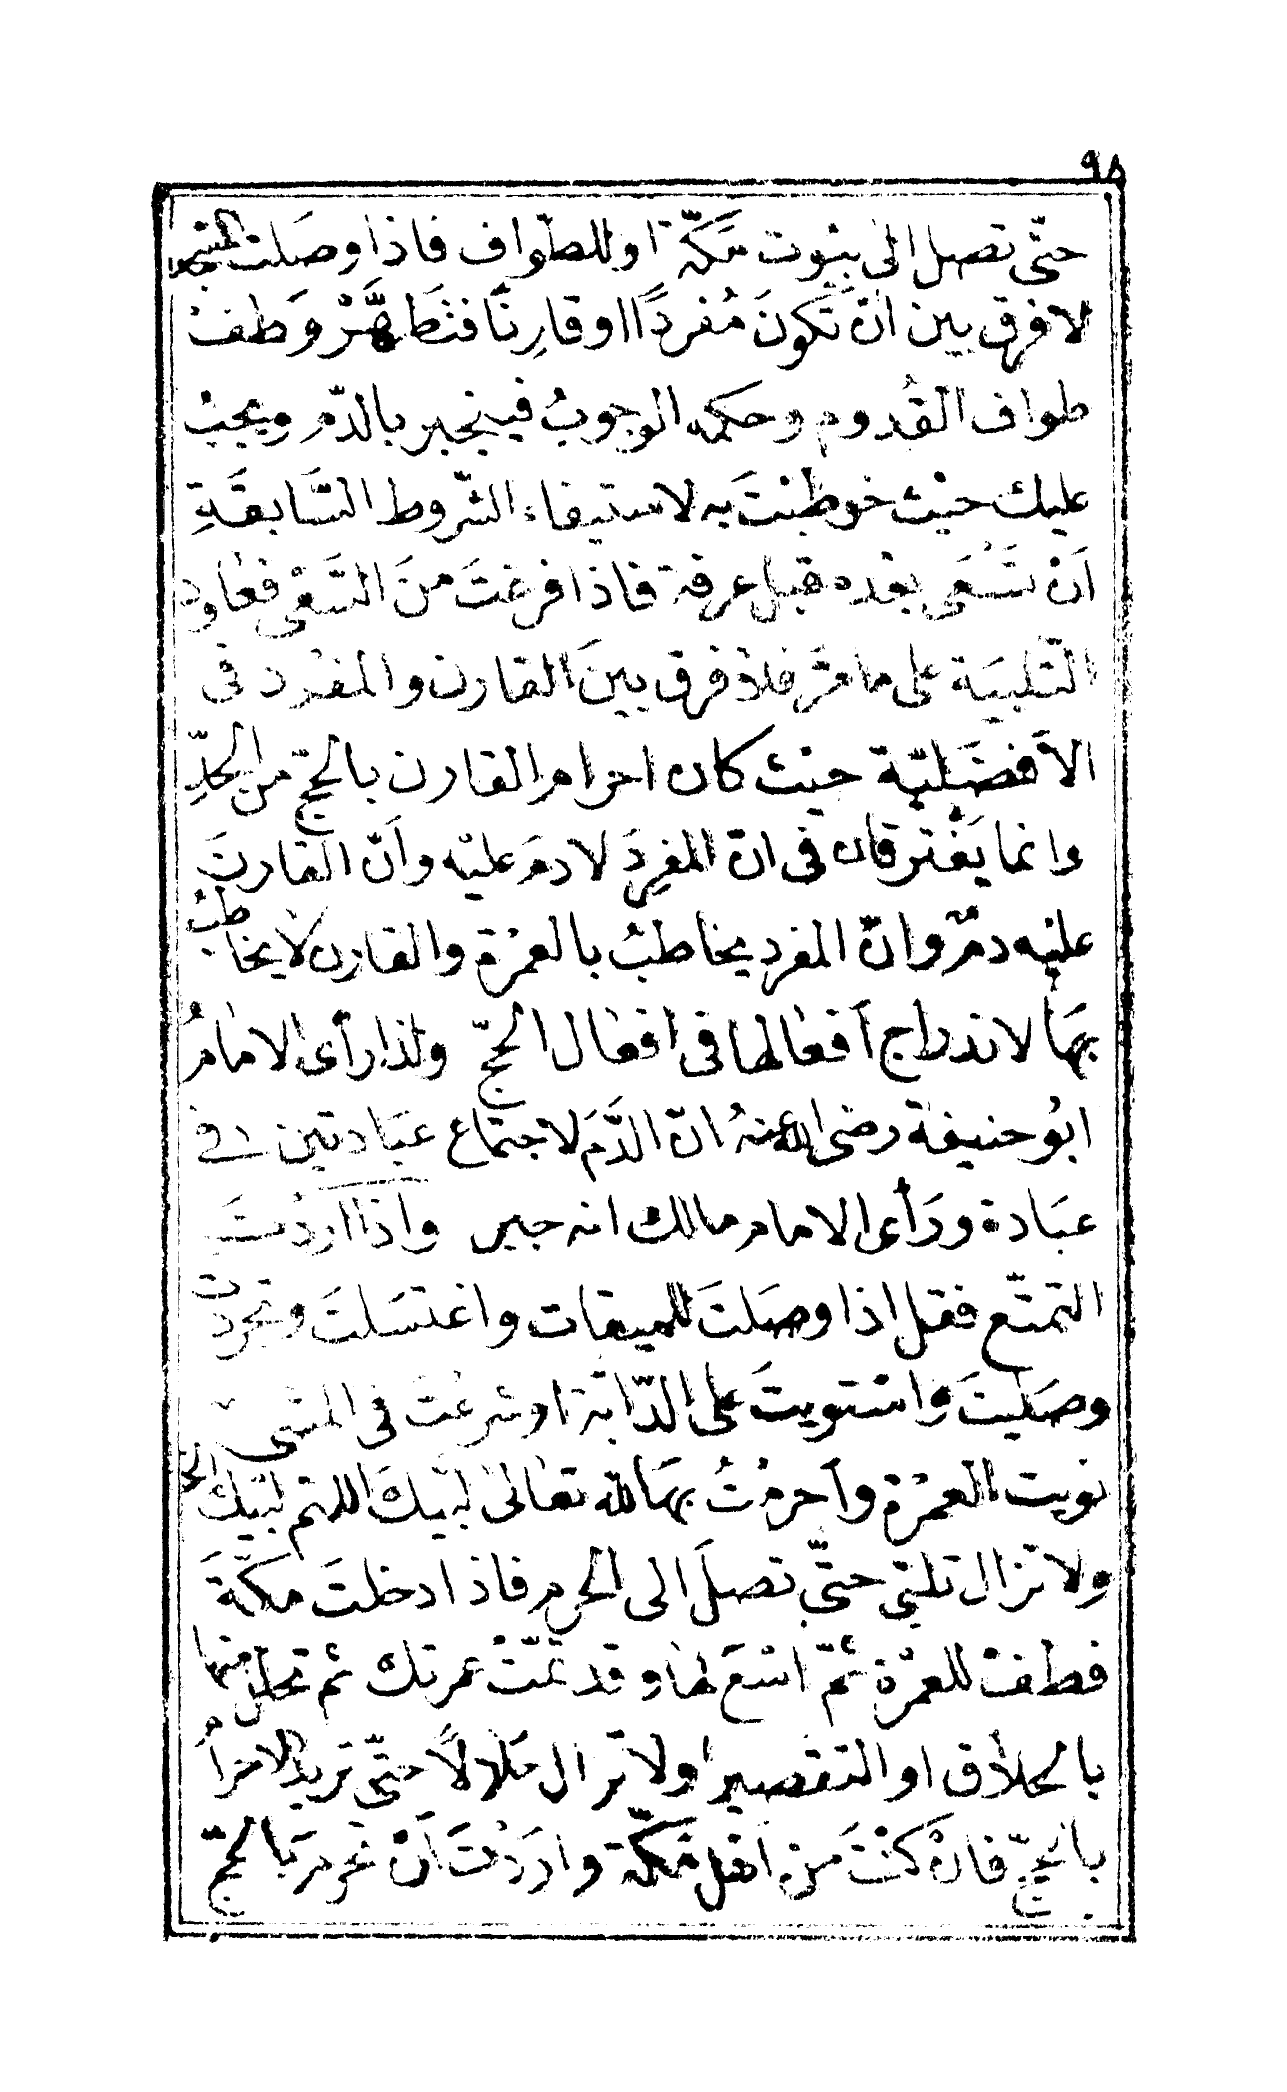 ٩٨
حتّى تصل الى بيوت مكّة او للطواف فاذا وصلت المسجد
لا فرق بين ان تكونَ مُفردًا او قارِنًا فتَطهَّرْ وَطفْ
طواف القُدوم وحكمه الوجوبُ فينجبر بالدّم ويجبُ
عليك حيْث خوطبْتَ به لاستيفاء الشّروط السَّابقَةِ
اَنْ تَسْعَى بعْده قبل عرفة فاذا فرغتَ منَ السَّعْى فعَاود
التّلبيَة على ما مرَّ فلا فرق بينَ القارن والمفرد فى
الأفضَليّة حيْث كان احرام القارن بالحجّ من الحلِّ
وانما يَفْترقان فى انّ المفرِدَ لا دمَ عليْه وأنّ القارنَ
عليْه دمٌ وانّ المفرد يخاطبُ بالعمرْة والقارن لا يخاطبُ
بهَا لاندراج أفعَالها فى افعَال الحجّ ولذا رأى الامَامُ
ابُو حنيفة رضى الله عنهُ انّ الدَّمَ لاجتماع عبَادتين فى
عبَادة ورَأى الامام مالك انه جبر واذا اردْتَ
التمتّع فقل اذا وصَلتَ للميقات واغتسَلتَ وتجردت
وصَليْتَ وَاسْتويتَ على الدّابّة او شرعْتَ فى المشى
نويت العمرْة وأحرمْتُ بهَا لله تعَالىٰ لبّيكَ اللهم لبّيك الخ
ولا تزال تلبّى حتّى تصلَ الى الحرم فاذا دخلتَ مكّةَ
فطفْ للعمرْة ثمّ اسْعَ لهَا وقد تمّتْ عمرتك ثم تحلل منها
بالحلاق او التقصير ولا تزال حَلالاً حتّى تريد الاحرام
بالحجّ فانْ كنْتَ منْ اهل مَكّة واردْتَ أنْ تحرمَ بالحجّ